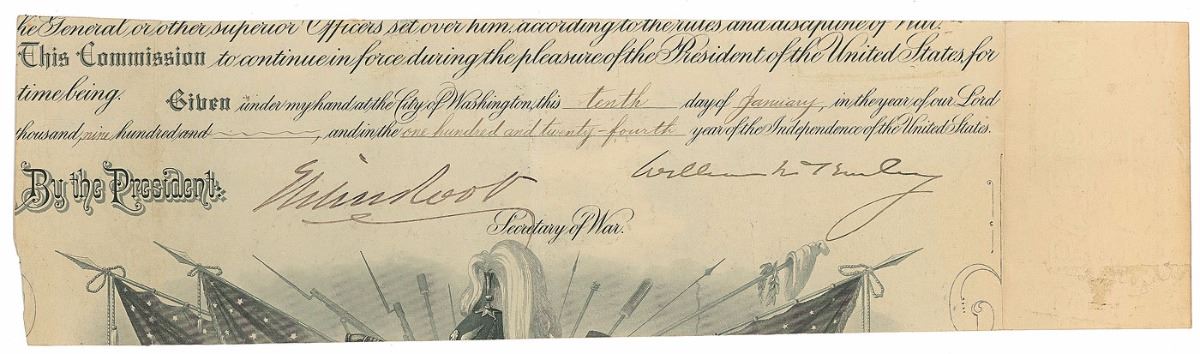 he General or other superior Officers set over him, according to the rules and discipline of War.
This Commission to continue in force during the pleasure of the President of the United States, for
time being. Given under my hand at the City of Washington, this tenth day of January, in the year of our Lord
thousand, nine hundred and, and in the one hundred and twenty-fourth year of the Independence of the United States.
By the President:
Elihu Root
William McKinley
Secretary of War.